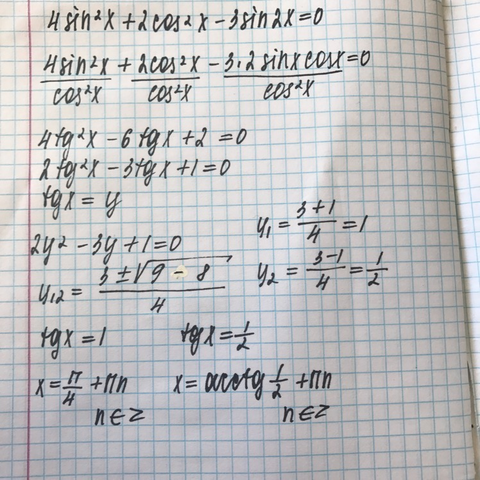 4sin²x + 2cos²x - 3sin2x = 0
4sin²x/cos²x + 2cos²x/cos²x - 3·2sinxcosx/cos²x = 0
4tg²x - 6tgx + 2 = 0
2tg²x - 3tgx + 1 = 0
tgx = y
2y² - 3y + 1 = 0
y₁₂ = (3 ± √(9 - 8))/4
y₁ = (3+1)/4 = 1
y₂ = (3-1)/4 = 1/2
tgx = 1 tgx = 1/2
x = π/4 + πn x = arctg 1/2 + πn
n∈Z n∈Z